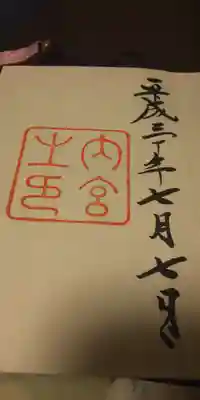 平成三十年七月七日
内宮
之印